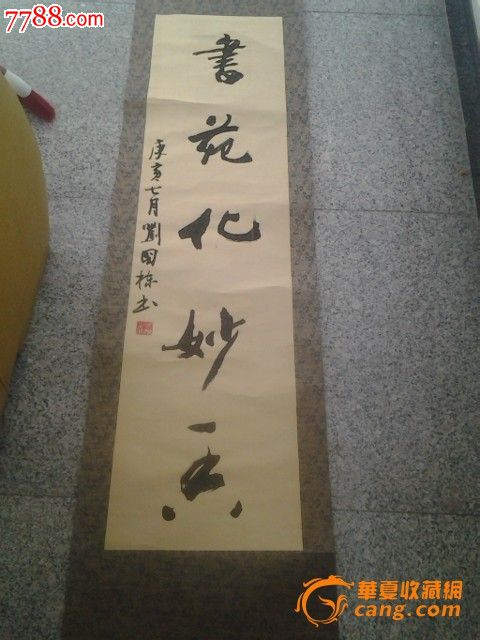 7788.com
書苑化妙香
庚寅七月劉国栋书
華夏收藏網
cang.com